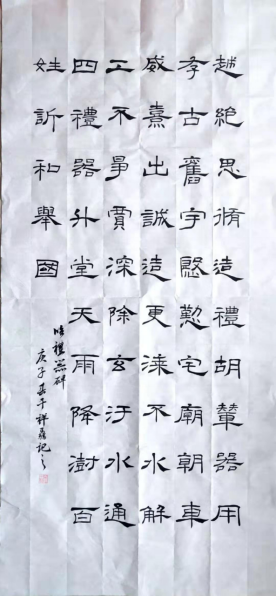 越絕思脩造禮胡輦器用
存古舊宇慇懃宅廟朝車
威熹出誠造更漆不水解
工不爭賈深除玄汙水通
四禮器升堂天雨降澍百
姓訢和舉國
临禮器碑
庚子 祥 记之